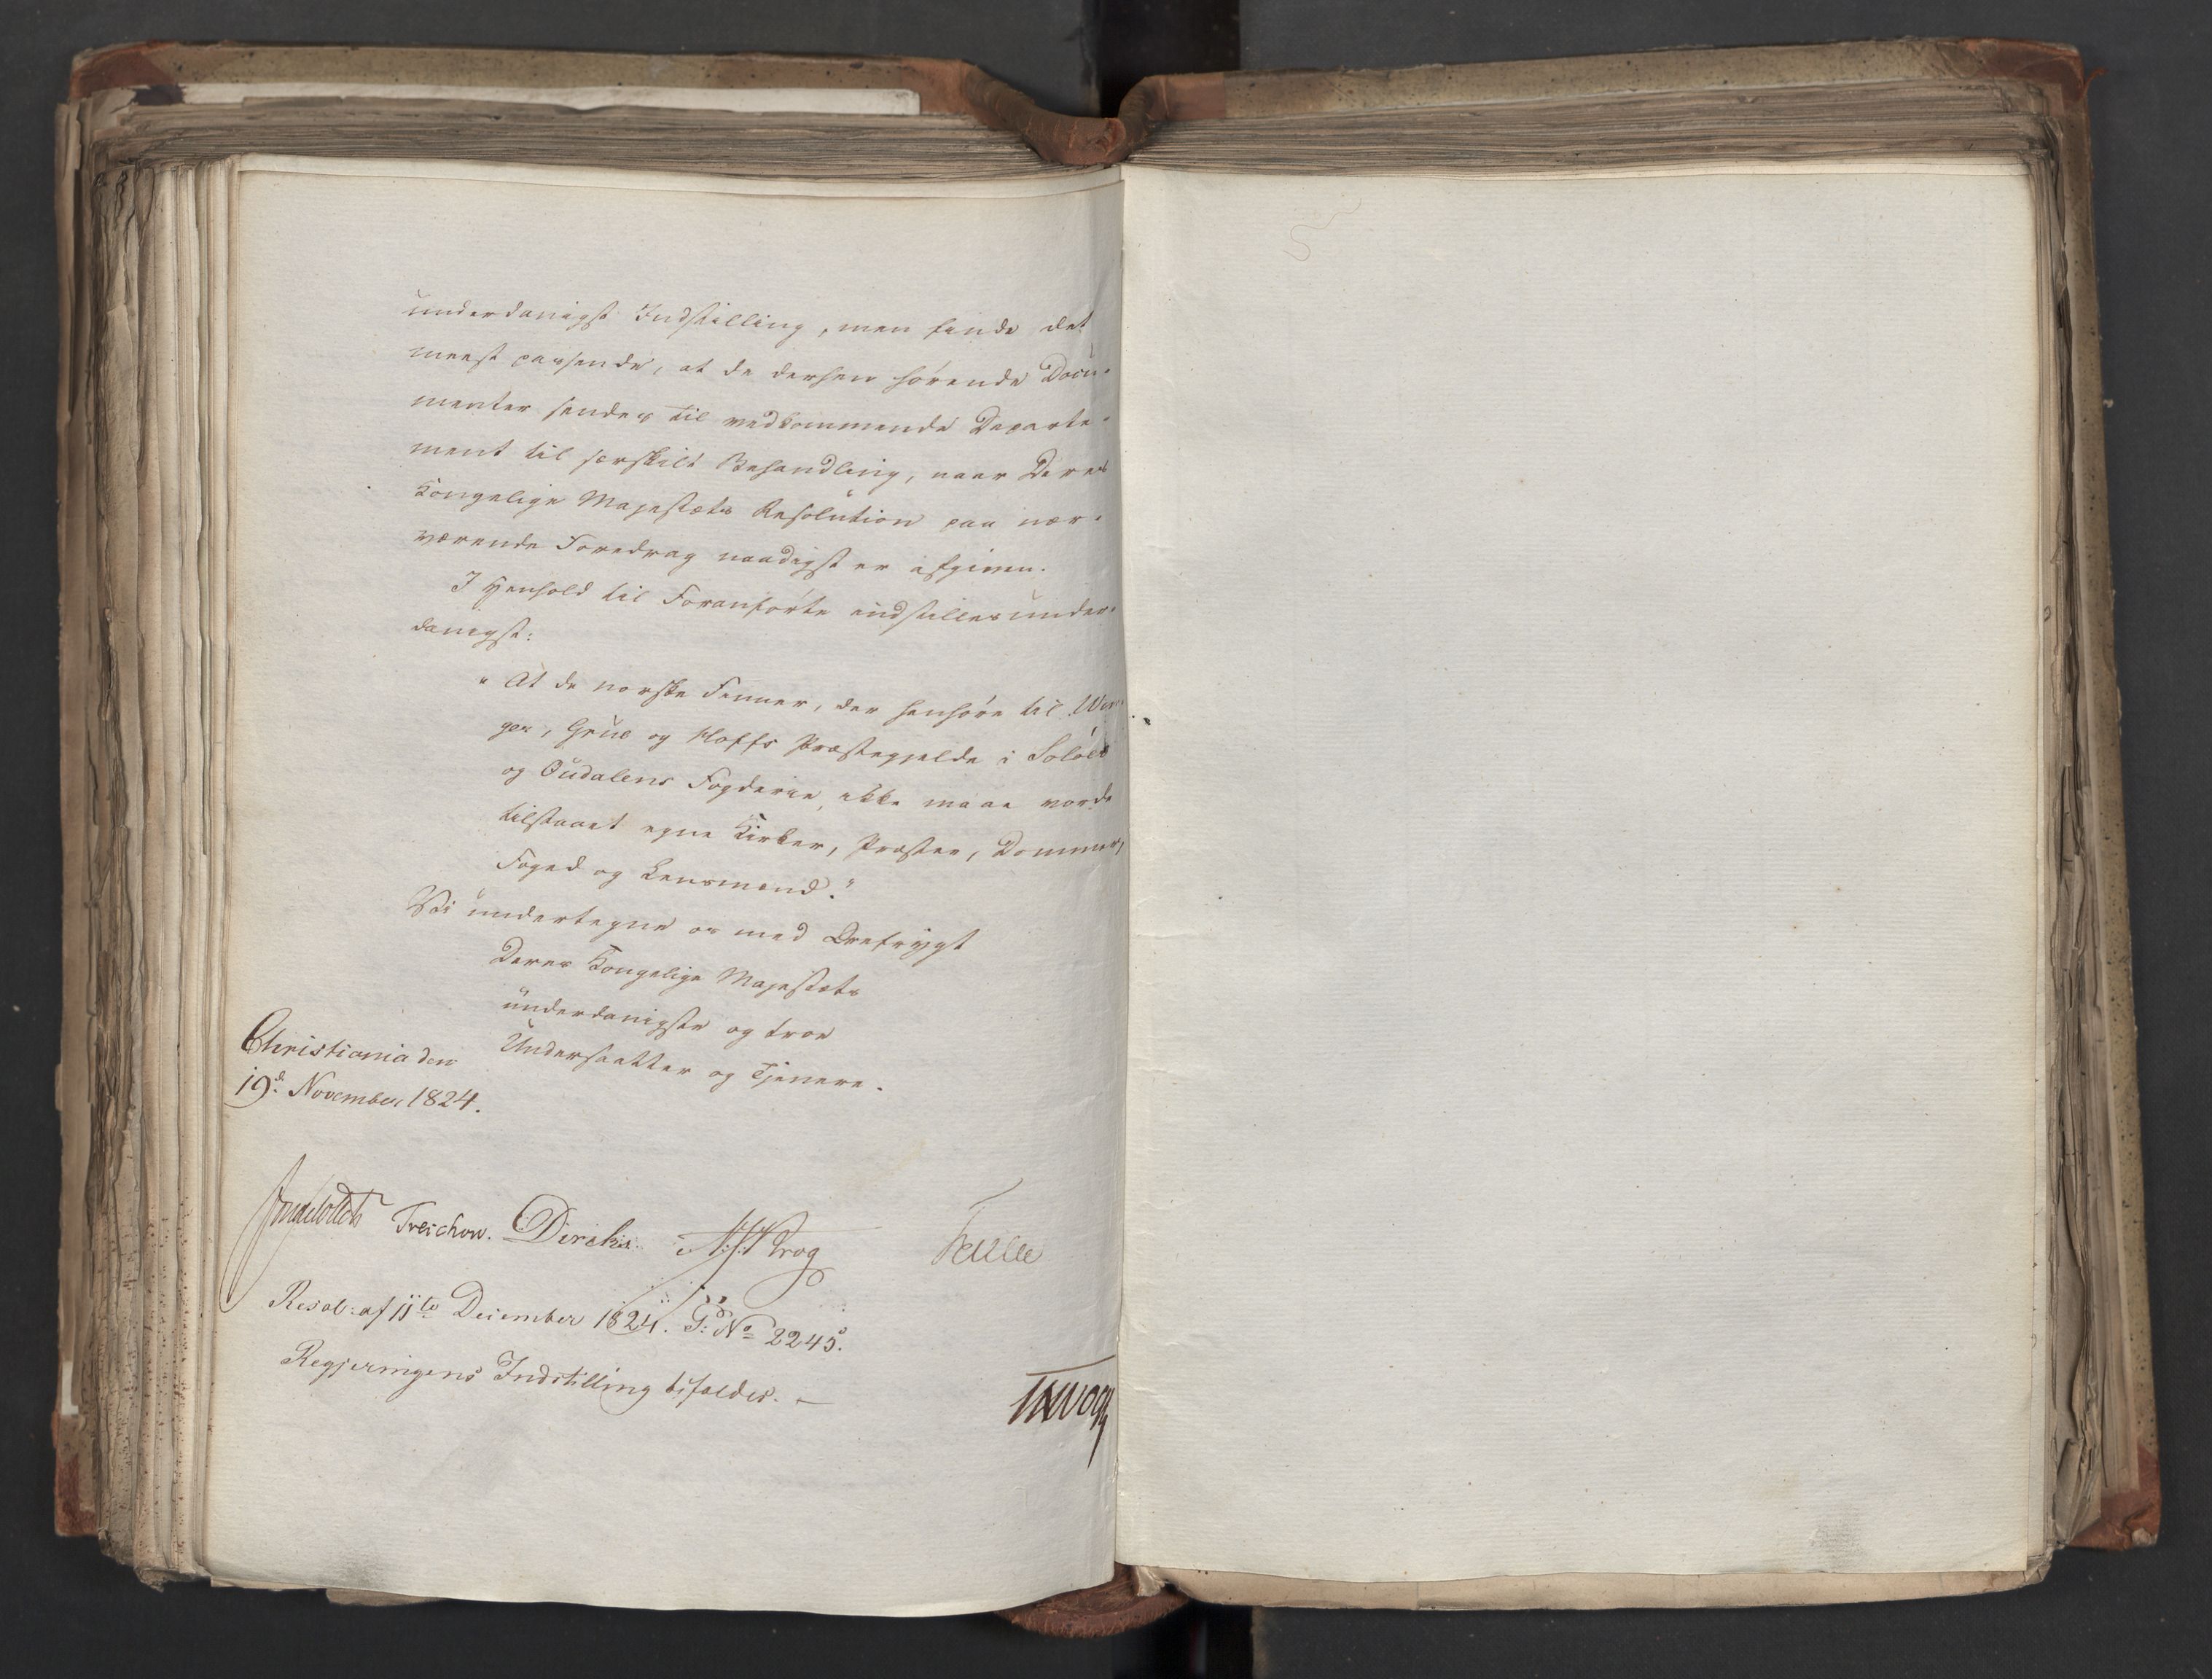 underdanigst Indstilling, men finde det
meest passende, at de derhen hørende Docu-
menter sendes til vedkommende Departe-
ment til særskilt Behandling, naar Deres
Kongelige Majestæts Resolution paa nær-
værende Foredrag naadigst er afgiven.
I Henhold til Foranførte indstilles under-
danigst:
"At de norske Finner, der henhøre til Win-
ger, Grue og Hoffs Præstegjelde i Solöer
og Oudalens Fogderie, ikke maae vorde
tilstaaet egne Kirker, Præster, Dommer,
Foged og Lensmænd."
Vi undertegne os med Ærefrygt
Deres Kongelige Majestæts
underdanigste og troe
Undersaatter og Tjenere.
Christiania den
19d. November 1824.
Treschow. Diriks. Krog
Resol: af 11te December 1824. G: No 2245.
Regjeringens Indstilling bifaldes. —